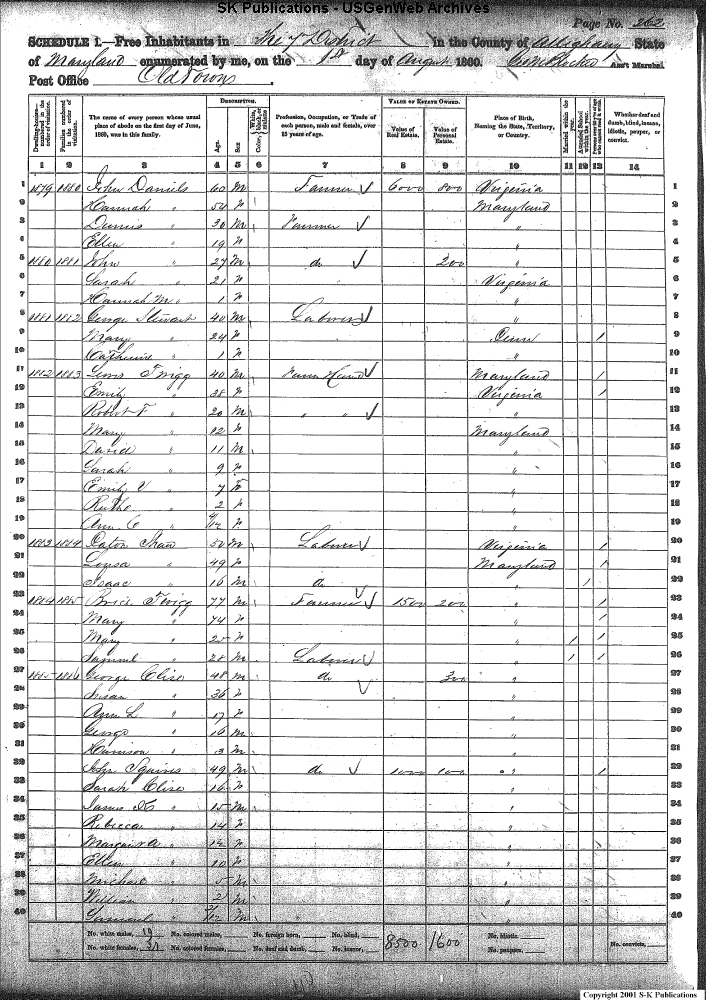 SK Publications - USGenWeb Archives
Page No. 262
SCHEDULE 1.—Free Inhabitants in the 7 District in the County of Alleghany State
of Maryland enumerated by me, on the 1st day of August 1860. Ass't Marshal.
Post Office Oldtown
DESCRIPTION. VALUE OF ESTATE OWNED.
Dwelling-houses—numbered in the order of visitation. Families numbered in the order of visitation. The name of every person whose usual place of abode on the first day of June, 1860, was in this family. Age. Sex. Color, White, black, or mulatto. Profession, Occupation, or Trade of each person, male and female, over 15 years of age. Value of Real Estate. Value of Personal Estate. Place of Birth, Naming the State, Territory, or Country. Married within the year. Attended School within the year. Persons over 20 y'rs of age who cannot read & write. Whether deaf and dumb, blind, insane, idiotic, pauper, or convict.
1 2 3 4 5 6 7 8 9 10 11 12 13 14
1 1879 1880 John Daniels 60 M Farmer 6000 800 Virginia 1
2 Hannah " 50 F Maryland 2
3 Dennis " 30 M Farmer " 3
4 Ellen " 19 F " 4
5 1880 1881 John " 27 M do 200 " 5
6 Sarah " 21 F Virginia 6
7 Hannah M " 1 F " 7
8 1881 1882 George Stewart 40 M Laborer " 8
9 Mary " 24 F Penn 1 9
10 Catherine " 1 F " 10
11 1882 1883 Lewis Twigg 40 M Farm Hand Maryland 1 11
12 Emily " 38 F Virginia 1 12
13 Robert F " 20 M " " " 13
14 Mary " 12 F Maryland 14
15 David " 11 M " 15
16 Sarah " 9 F " 16
17 Emily V " 7 F " 17
18 Ruth " 2 F " 18
19 Ann C " /12 F " 19
20 1883 1884 Eaton Shaw 50 M Laborer Virginia 1 20
21 Louisa " 49 F Maryland 1 21
22 Isaac " 16 M do " 1 22
23 1884 1885 Brice Twigg 77 M Farmer 1500 200 " 1 23
24 Mary " 74 F " 1 24
25 Mary " 25 F " 1 1 25
26 Samuel " 28 M Laborer " 1 1 26
27 1885 1886 George Clise 48 M do 300 " 27
28 Susan " 36 F " 28
29 Ann L " 17 F " 29
30 George " 16 M " 30
31 Harrison " 13 M " 31
32 John Squires 49 M do 1000 100 " 1 32
33 Sarah Clise 16 F " 33
34 James " 15 M " 34
35 Rebecca " 14 F " 35
36 Margaret A " 12 F " 36
37 Ellen " 10 F " 37
38 Michael " 5 M " 38
39 William " 2 M " 39
40 Samuel " /12 M " 40
No. white males, 19 No. colored males, No. foreign born, No. blind, 8500 1600 No. idiotic,
No. white females, 21 No. colored females, No. deaf and dumb, No. insane, No. paupers, No. convicts,
Copyright 2001 S-K Publications